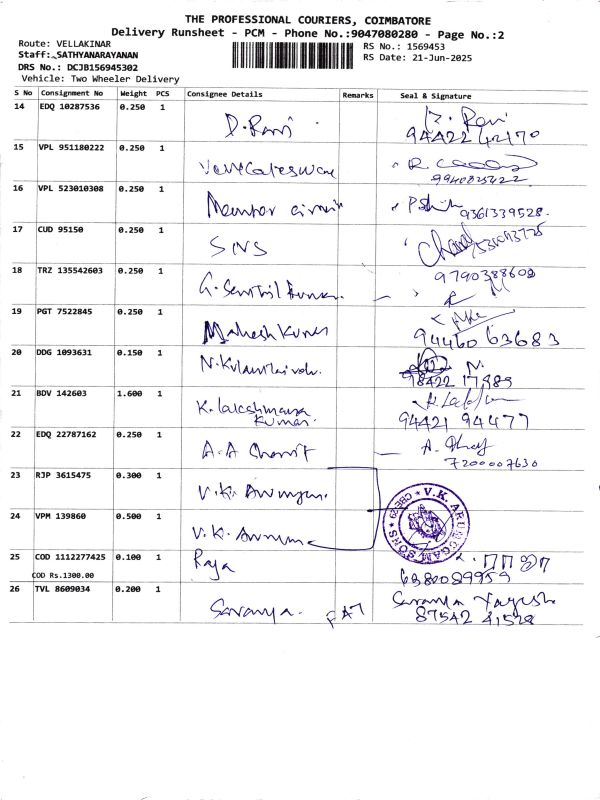 THE PROFESSIONAL COURIERS, COIMBATORE
Delivery Runsheet - PCM - Phone No.:9047080280 - Page No.:2
Route: VELLAKINAR
RS No.: 1569453
Staff: SATHYANARAYANAN
RS Date: 21-Jun-2025
DRS No.: DCJB156945302
Vehicle: Two Wheeler Delivery
S No Consignment No Weight PCS Consignee Details Remarks Seal & Signature
14 EDQ 10287536 0.250 1 D. Ravi D. Ravi
94422 42170
15 VPL 951180222 0.250 1 R.
16 VPL 523010308 0.250 1 9361339528
17 CUD 95150 0.250 1 SNS
18 TRZ 135542603 0.250 1 9790388608
19 PGT 7522845 0.250 1 Mahesh Kumar
94460 63683
20 DDG 1093631 0.150 1 N.
98422
21 BDV 142603 1.600 1 K. Lakshmana
Kumar. 94421 94477
22 EDQ 22787162 0.250 1 A.A A.
7200007630
23 RJP 3615475 0.300 1 V.K.
V.K. ARUMUGAM SONS CBE-29
24 VPM 139860 0.500 1 V.K.
25 COD 1112277425 0.100 1 Raja
COD Rs.1300.00 6380089959
26 TVL 8609034 0.200 1 Saranya. Saranya
87542 41528